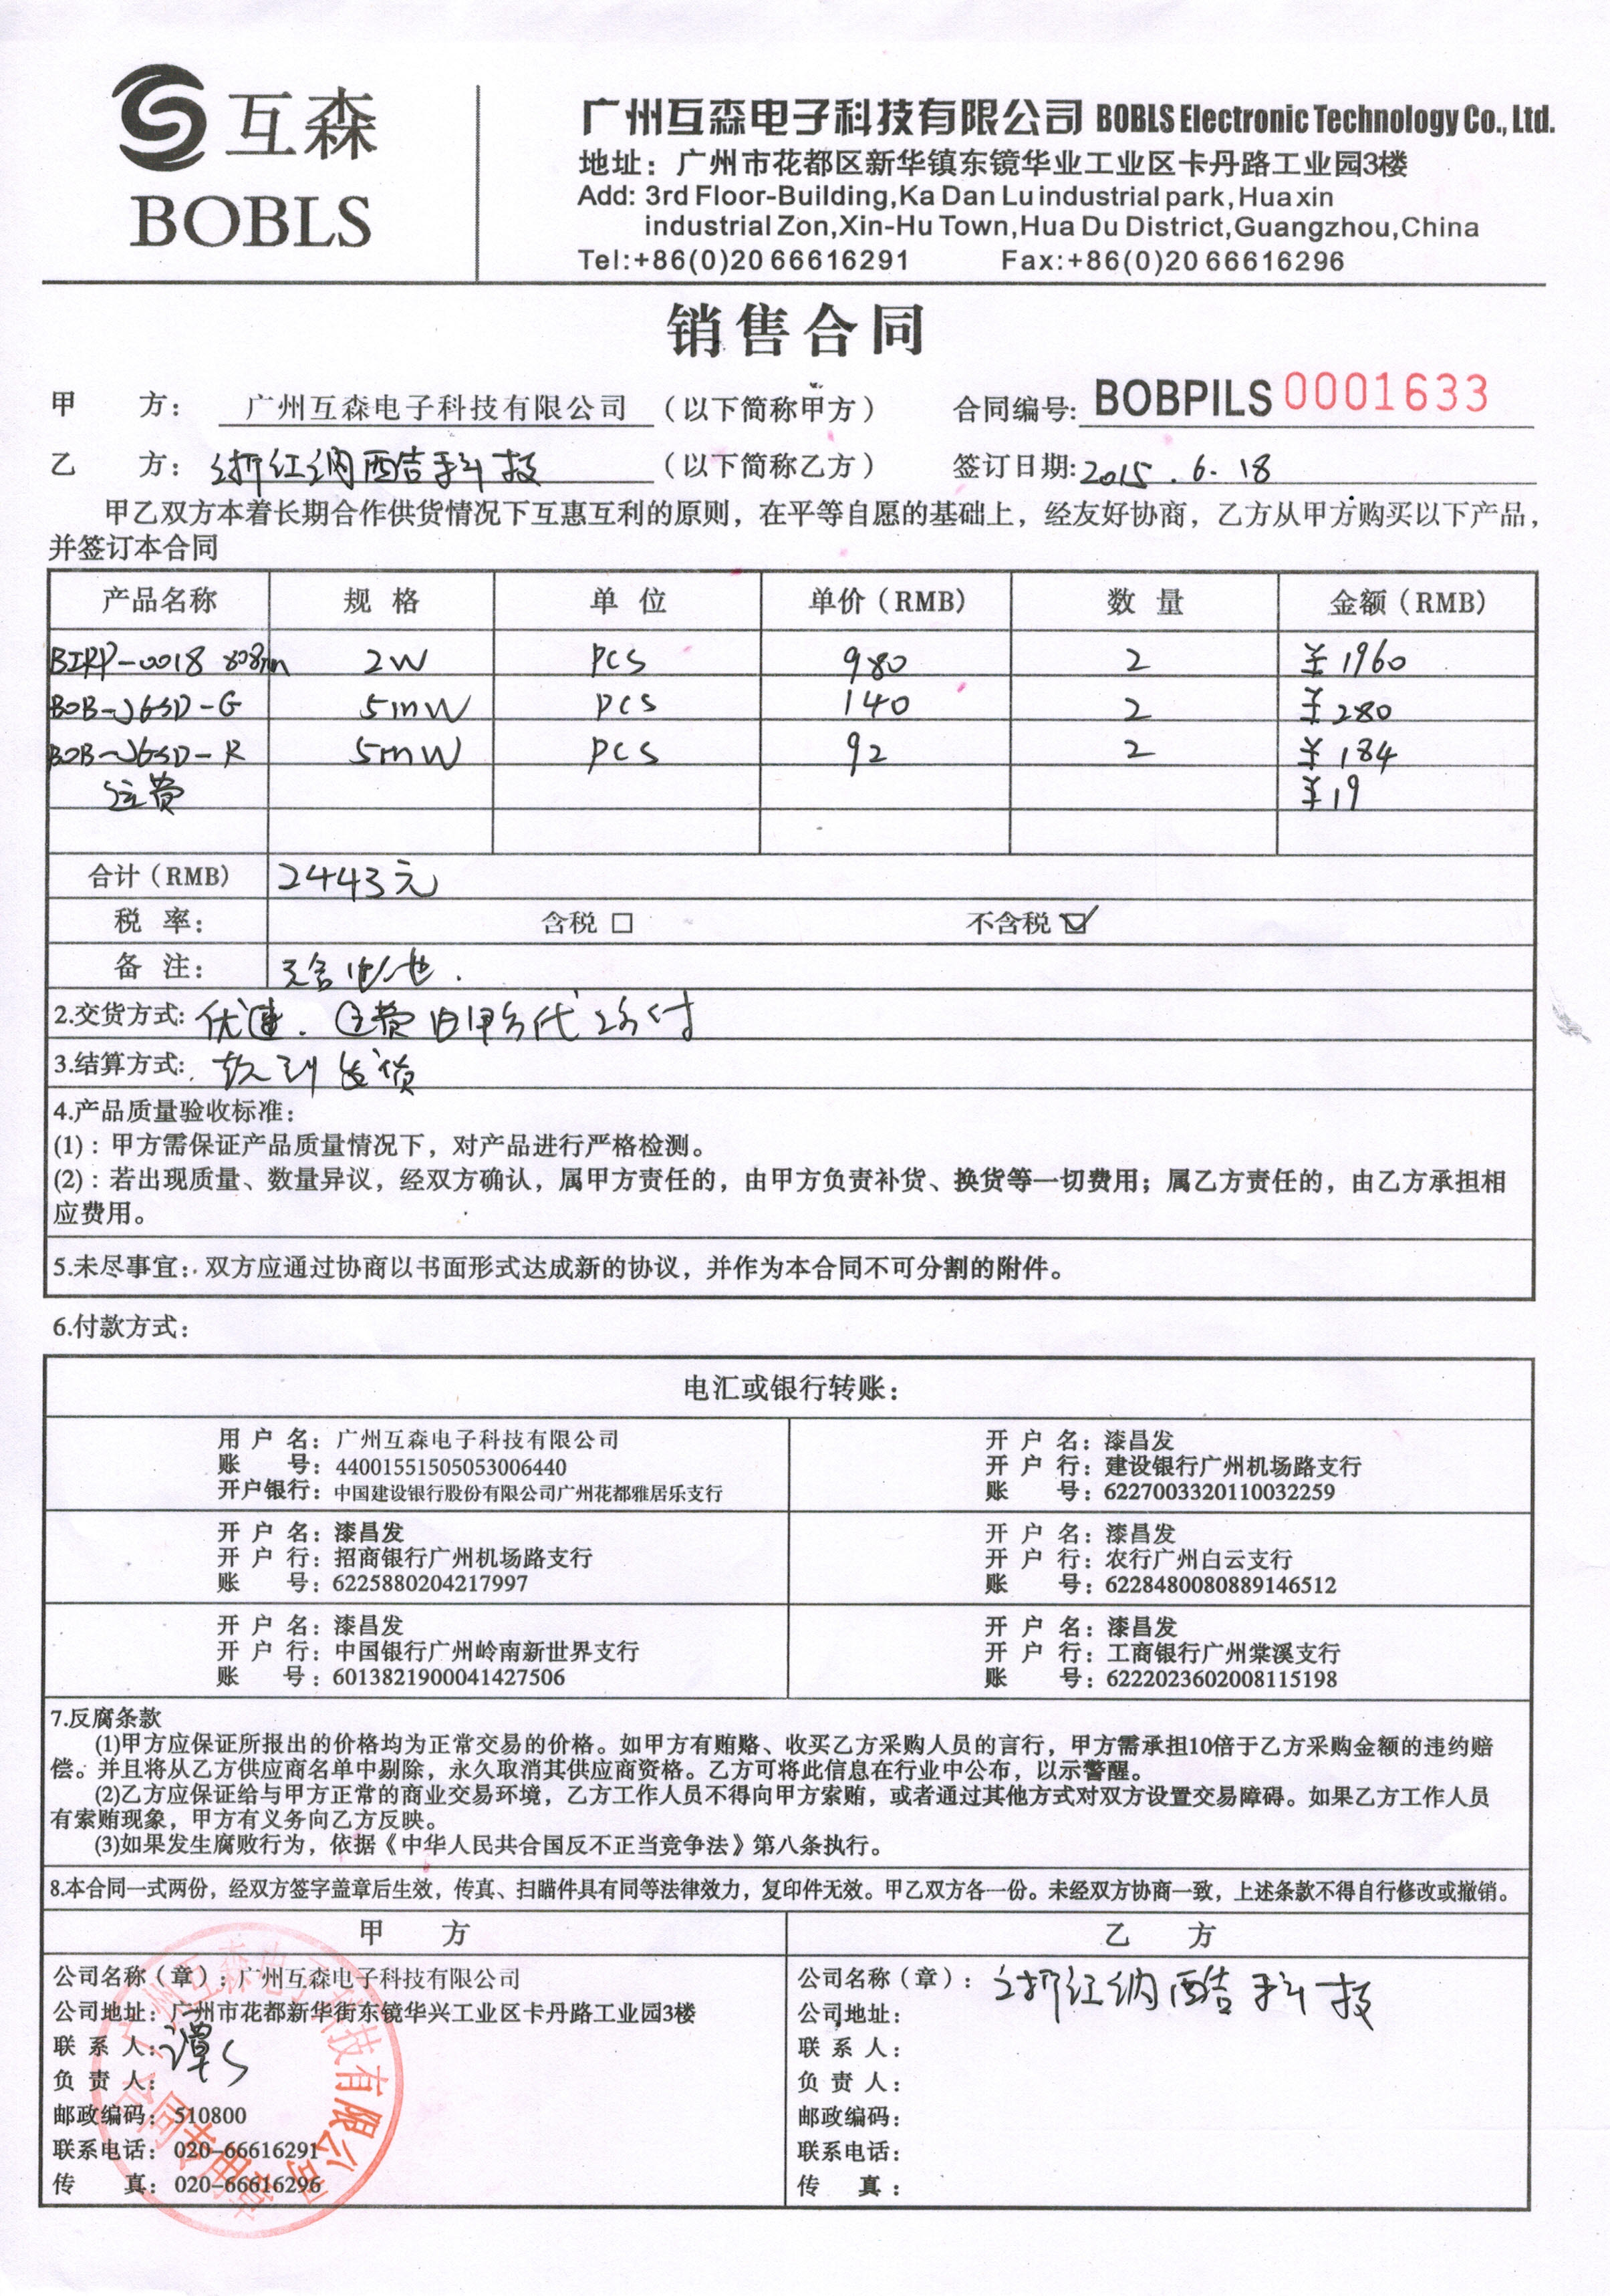 互森
BOBLS
广州互森电子科技有限公司 BOBLS Electronic Technology Co., Ltd.
地址：广州市花都区新华镇东镜华业工业区卡丹路工业园3楼
Add: 3rd Floor-Building,Ka Dan Lu industrial park,Hua xin
industrial Zon,Xin-Hu Town,Hua Du District,Guangzhou,China
Tel:+86(0)20 66616291 Fax:+86(0)20 66616296
销售合同
甲 方： 广州互森电子科技有限公司 （以下简称甲方） 合同编号: BOBPILS 0001633
乙 方： 浙江纳酷科技 （以下简称乙方） 签订日期: 2015.6.18
甲乙双方本着长期合作供货情况下互惠互利的原则，在平等自愿的基础上，经友好协商，乙方从甲方购买以下产品，
并签订本合同
产品名称 规 格 单 位 单价（RMB） 数 量 金额（RMB）
BIRP-0018 808nm 2W PCS 980 2 ¥ 1960
BOB-JGSD-G 5mW PCS 140 2 ¥ 280
BOB-JGSD-R 5mW PCS 92 2 ¥ 184
运费 ¥ 19
合计（RMB） 2443元
税 率： 含税 □ 不含税 ☑
备 注： 无含电池.
2.交货方式: 优速. 运费由甲方代为付
3.结算方式: 款到发货
4.产品质量验收标准：
(1)：甲方需保证产品质量情况下，对产品进行严格检测。
(2)：若出现质量、数量异议，经双方确认，属甲方责任的，由甲方负责补货、换货等一切费用；属乙方责任的，由乙方承担相
应费用。
5.未尽事宜：双方应通过协商以书面形式达成新的协议，并作为本合同不可分割的附件。
6.付款方式：
电汇或银行转账：
用 户 名：广州互森电子科技有限公司
账 号：44001551505053006440
开户银行：中国建设银行股份有限公司广州花都雅居乐支行
开 户 名：漆昌发
开 户 行：建设银行广州机场路支行
账 号：6227003320110032259
开 户 名：漆昌发
开 户 行：招商银行广州机场路支行
账 号：6225880204217997
开 户 名：漆昌发
开 户 行：农行广州白云支行
账 号：6228480080889146512
开 户 名：漆昌发
开 户 行：中国银行广州岭南新世界支行
账 号：6013821900041427506
开 户 名：漆昌发
开 户 行：工商银行广州棠溪支行
账 号：6222023602008115198
7.反腐条款
(1)甲方应保证所报出的价格均为正常交易的价格。如甲方有贿赂、收买乙方采购人员的言行，甲方需承担10倍于乙方采购金额的违约赔
偿。并且将从乙方供应商名单中剔除，永久取消其供应商资格。乙方可将此信息在行业中公布，以示警醒。
(2)乙方应保证给与甲方正常的商业交易环境，乙方工作人员不得向甲方索贿，或者通过其他方式对双方设置交易障碍。如果乙方工作人员
有索贿现象，甲方有义务向乙方反映。
(3)如果发生腐败行为，依据《中华人民共合国反不正当竞争法》第八条执行。
8.本合同一式两份，经双方签字盖章后生效，传真、扫瞄件具有同等法律效力，复印件无效。甲乙双方各一份。未经双方协商一致，上述条款不得自行修改或撤销。
甲 方
乙 方
公司名称（章）：广州互森电子科技有限公司
公司地址：广州市花都新华街东镜华兴工业区卡丹路工业园3楼
联 系 人：谭
负 责 人：
邮政编码：510800
联系电话：020-66616291
传 真：020-66616296
广州互森电子科技有限公司
合同专用章
公司名称（章）：浙江纳酷科技
公司地址：
联 系 人：
负 责 人：
邮政编码：
联系电话：
传 真：